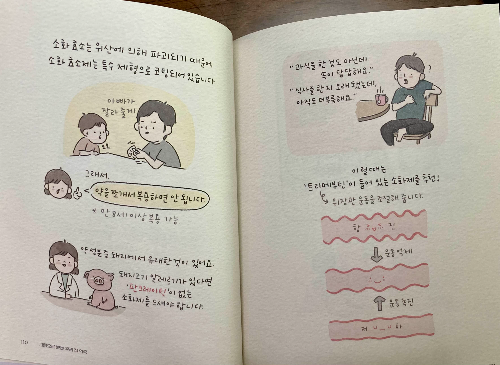 소화 효소는 위산에 의해 파괴되기 때문에
소화 효소제는 특수 제형으로 코팅되어 있습니다
아빠가
잘라 줄게
그래서,
약을 쪼개서 복용하면 안 됩니다
* 만 8세 이상 복용 가능
돼지에서 유래한 것이 있어요.
돼지고기 알레르기가 있다면
'판크레아틴'이 없는
소화제를 드셔야 합니다.
"과식을 한 것도 아닌데
속이 답답해요."
"식사을 한 지 오래 됐는데,
아직도 더부룩해요."
이럴 때는
'트리메부틴'이 들어 있는 소화제를 추천!
위장관 운동을 조절해 줍니다.
운동억제
운동촉진